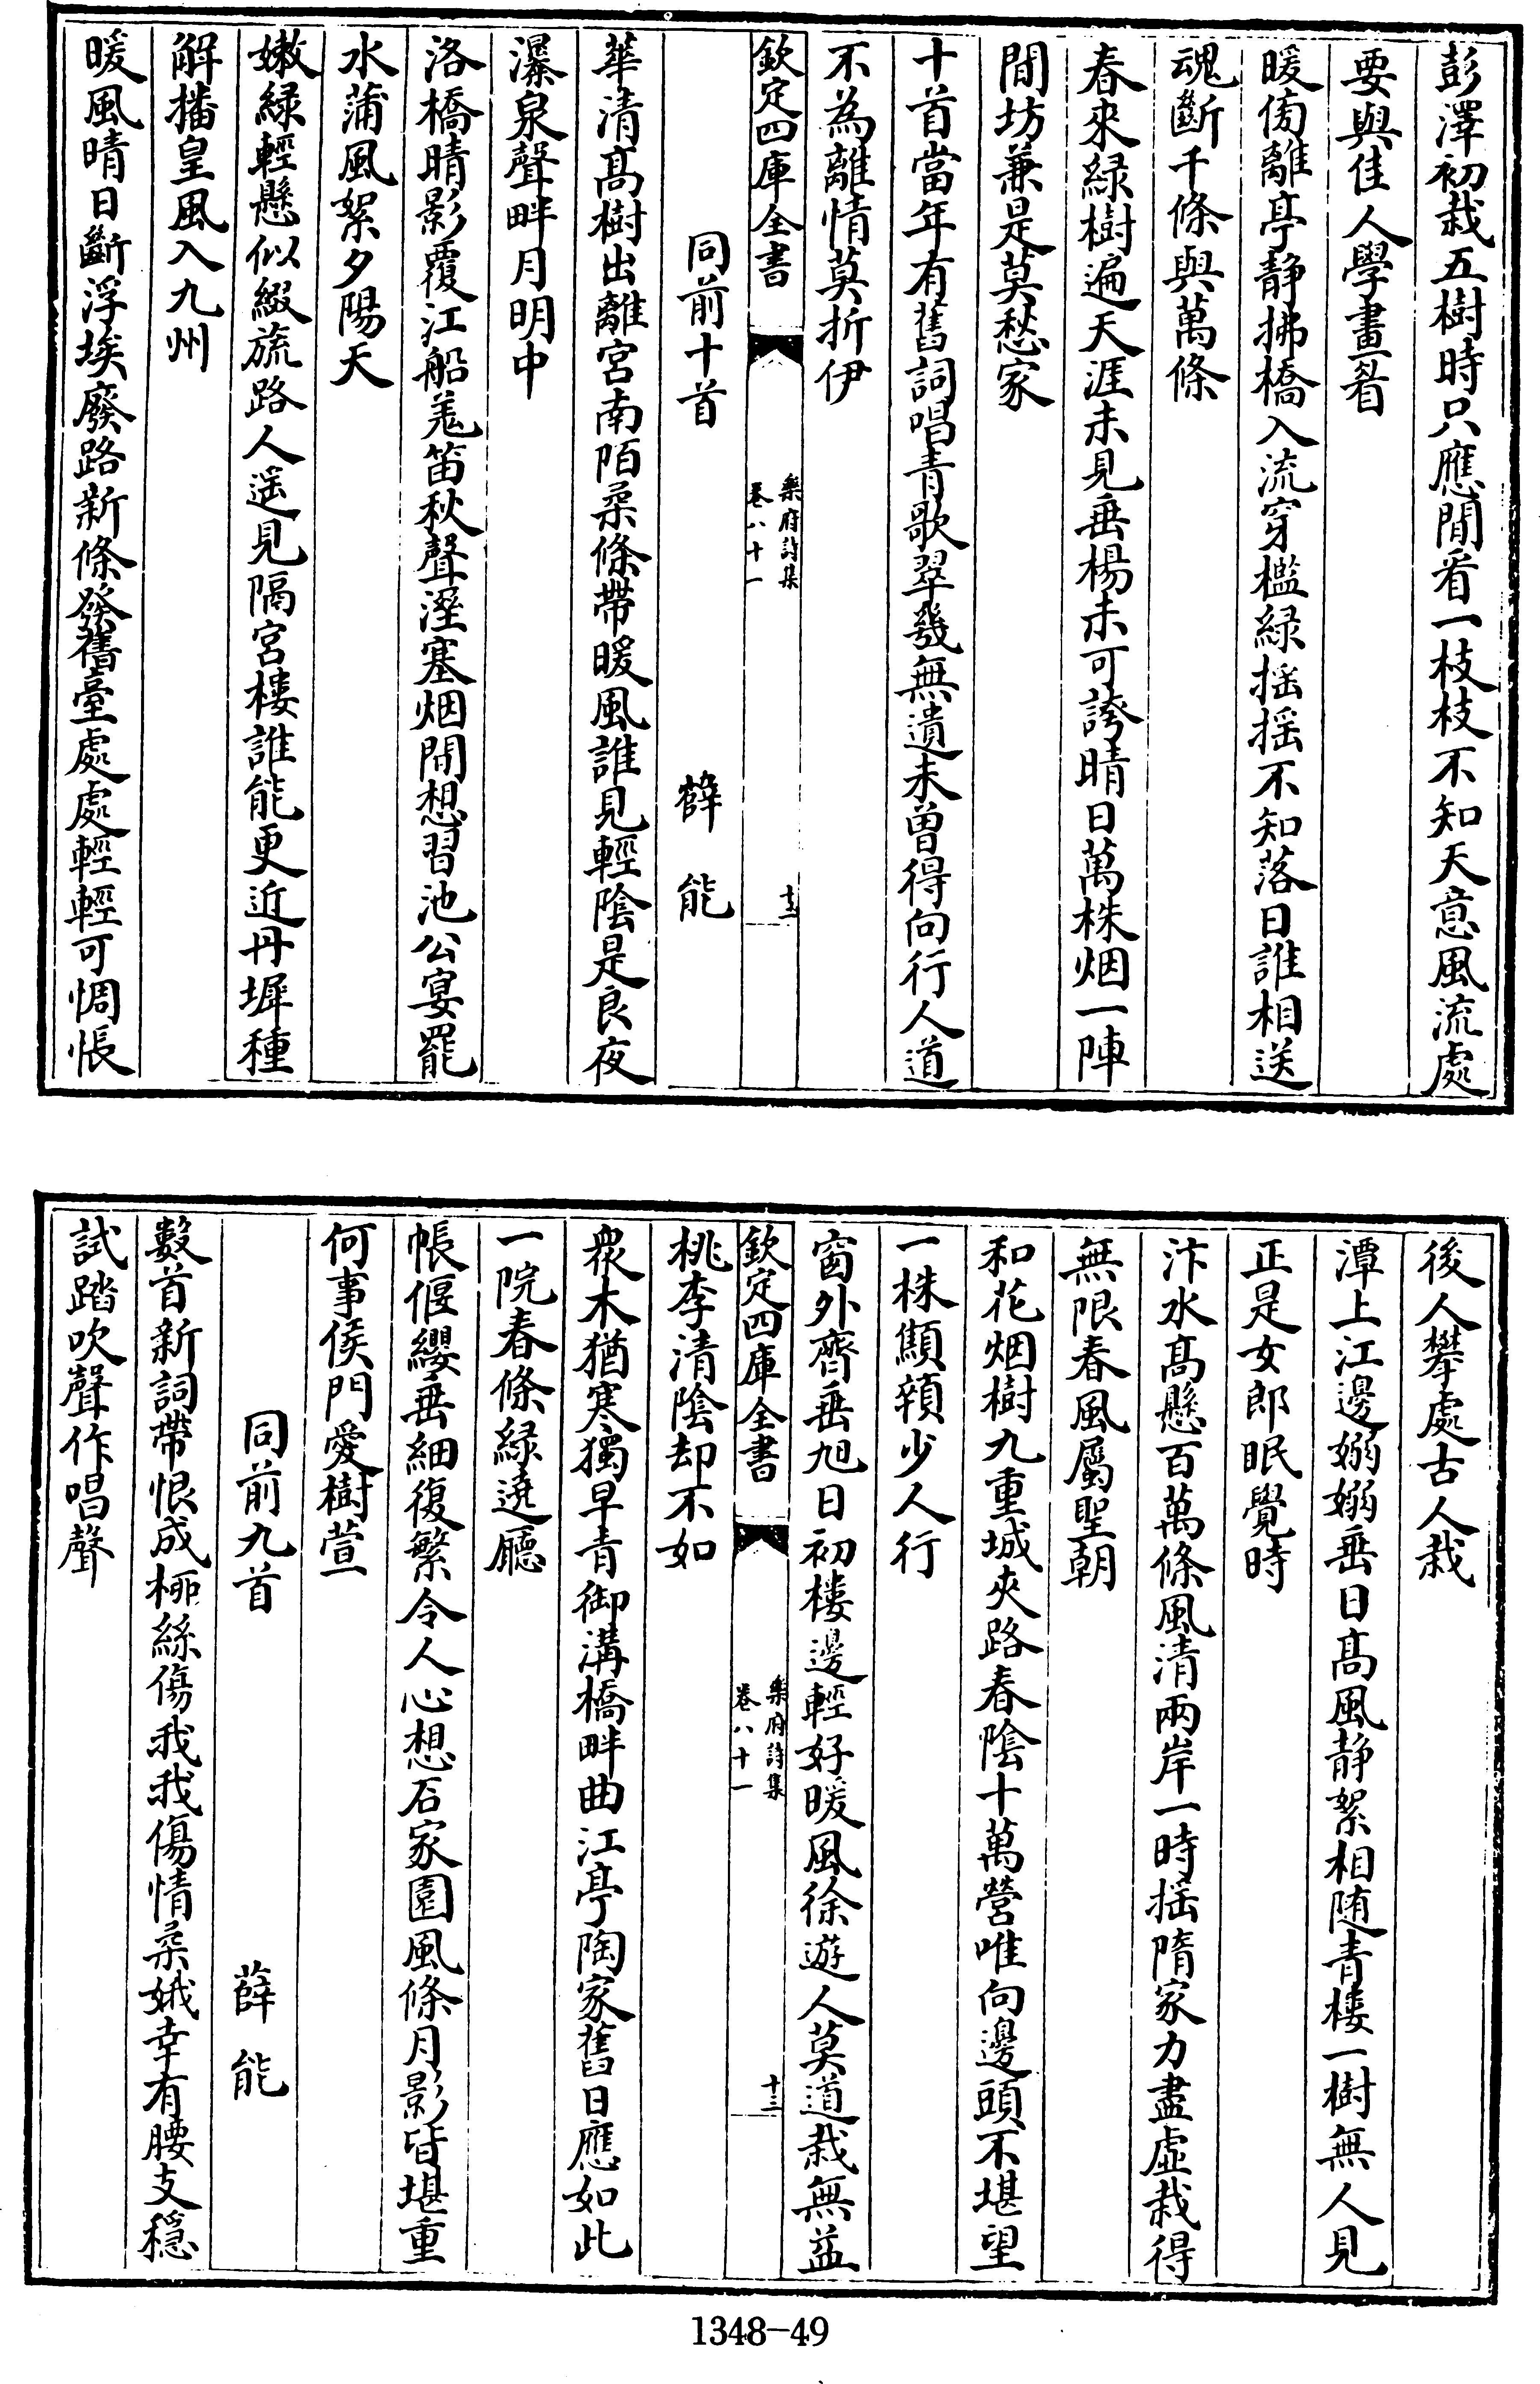 彭澤初栽五樹時只應閒看一枝枝不知天意風流處
要與佳人學畫眉
暖傍離亭靜拂橋入流穿檻緑搖搖不知落日誰相送
魂斷千條與萬條
春來緑樹遍天涯未見垂楊未可誇晴日萬株烟一陣
閒坊兼是莫愁家
十首當年有舊詞唱青歌翠幾無遺未曽得向行人道
不為離情莫折伊
欽定四庫全書
樂府詩集
卷八十一
十二
同前十首
薛能
華清髙樹出離宮南陌柔條帶暖風誰見輕陰是良夜
瀑泉聲畔月明中
洛橋晴影覆江船羌笛秋聲溼塞烟閒想習池公宴罷
水蒲風絮夕陽天
嫩緑輕懸似綴旒路人遥見隔宮樓誰能更近丹墀種
解播皇風入九州
暖風晴日斷浮埃廢路新條發舊臺處處輕輕可惆悵
後人攀處古人栽
潭上江邊嫋嫋垂日髙風靜絮相随青樓一樹無人見
正是女郎眠覺時
汴水髙懸百萬條風清兩岸一時搖隋家力盡虛栽得
無限春風屬聖朝
和花烟樹九重城夾路春陰十萬營唯向邊頭不堪望
一株顦顇少人行
窗外齊垂旭日初樓邊輕好暖風徐遊人莫道栽無益
欽定四庫全書
樂府詩集
卷八十一
十三
桃李清陰却不如
衆木猶寒獨早青御溝橋畔曲江亭陶家舊日應如此
一院春條緑遶廳
帳偃纓垂細復繁令人心想石家園風條月影皆堪重
何事侯門愛樹萱
同前九首
薛能
數首新詞帶恨成桞絲傷我我傷情柔娥幸有腰支穩
試踏吹聲作唱聲
1348-49